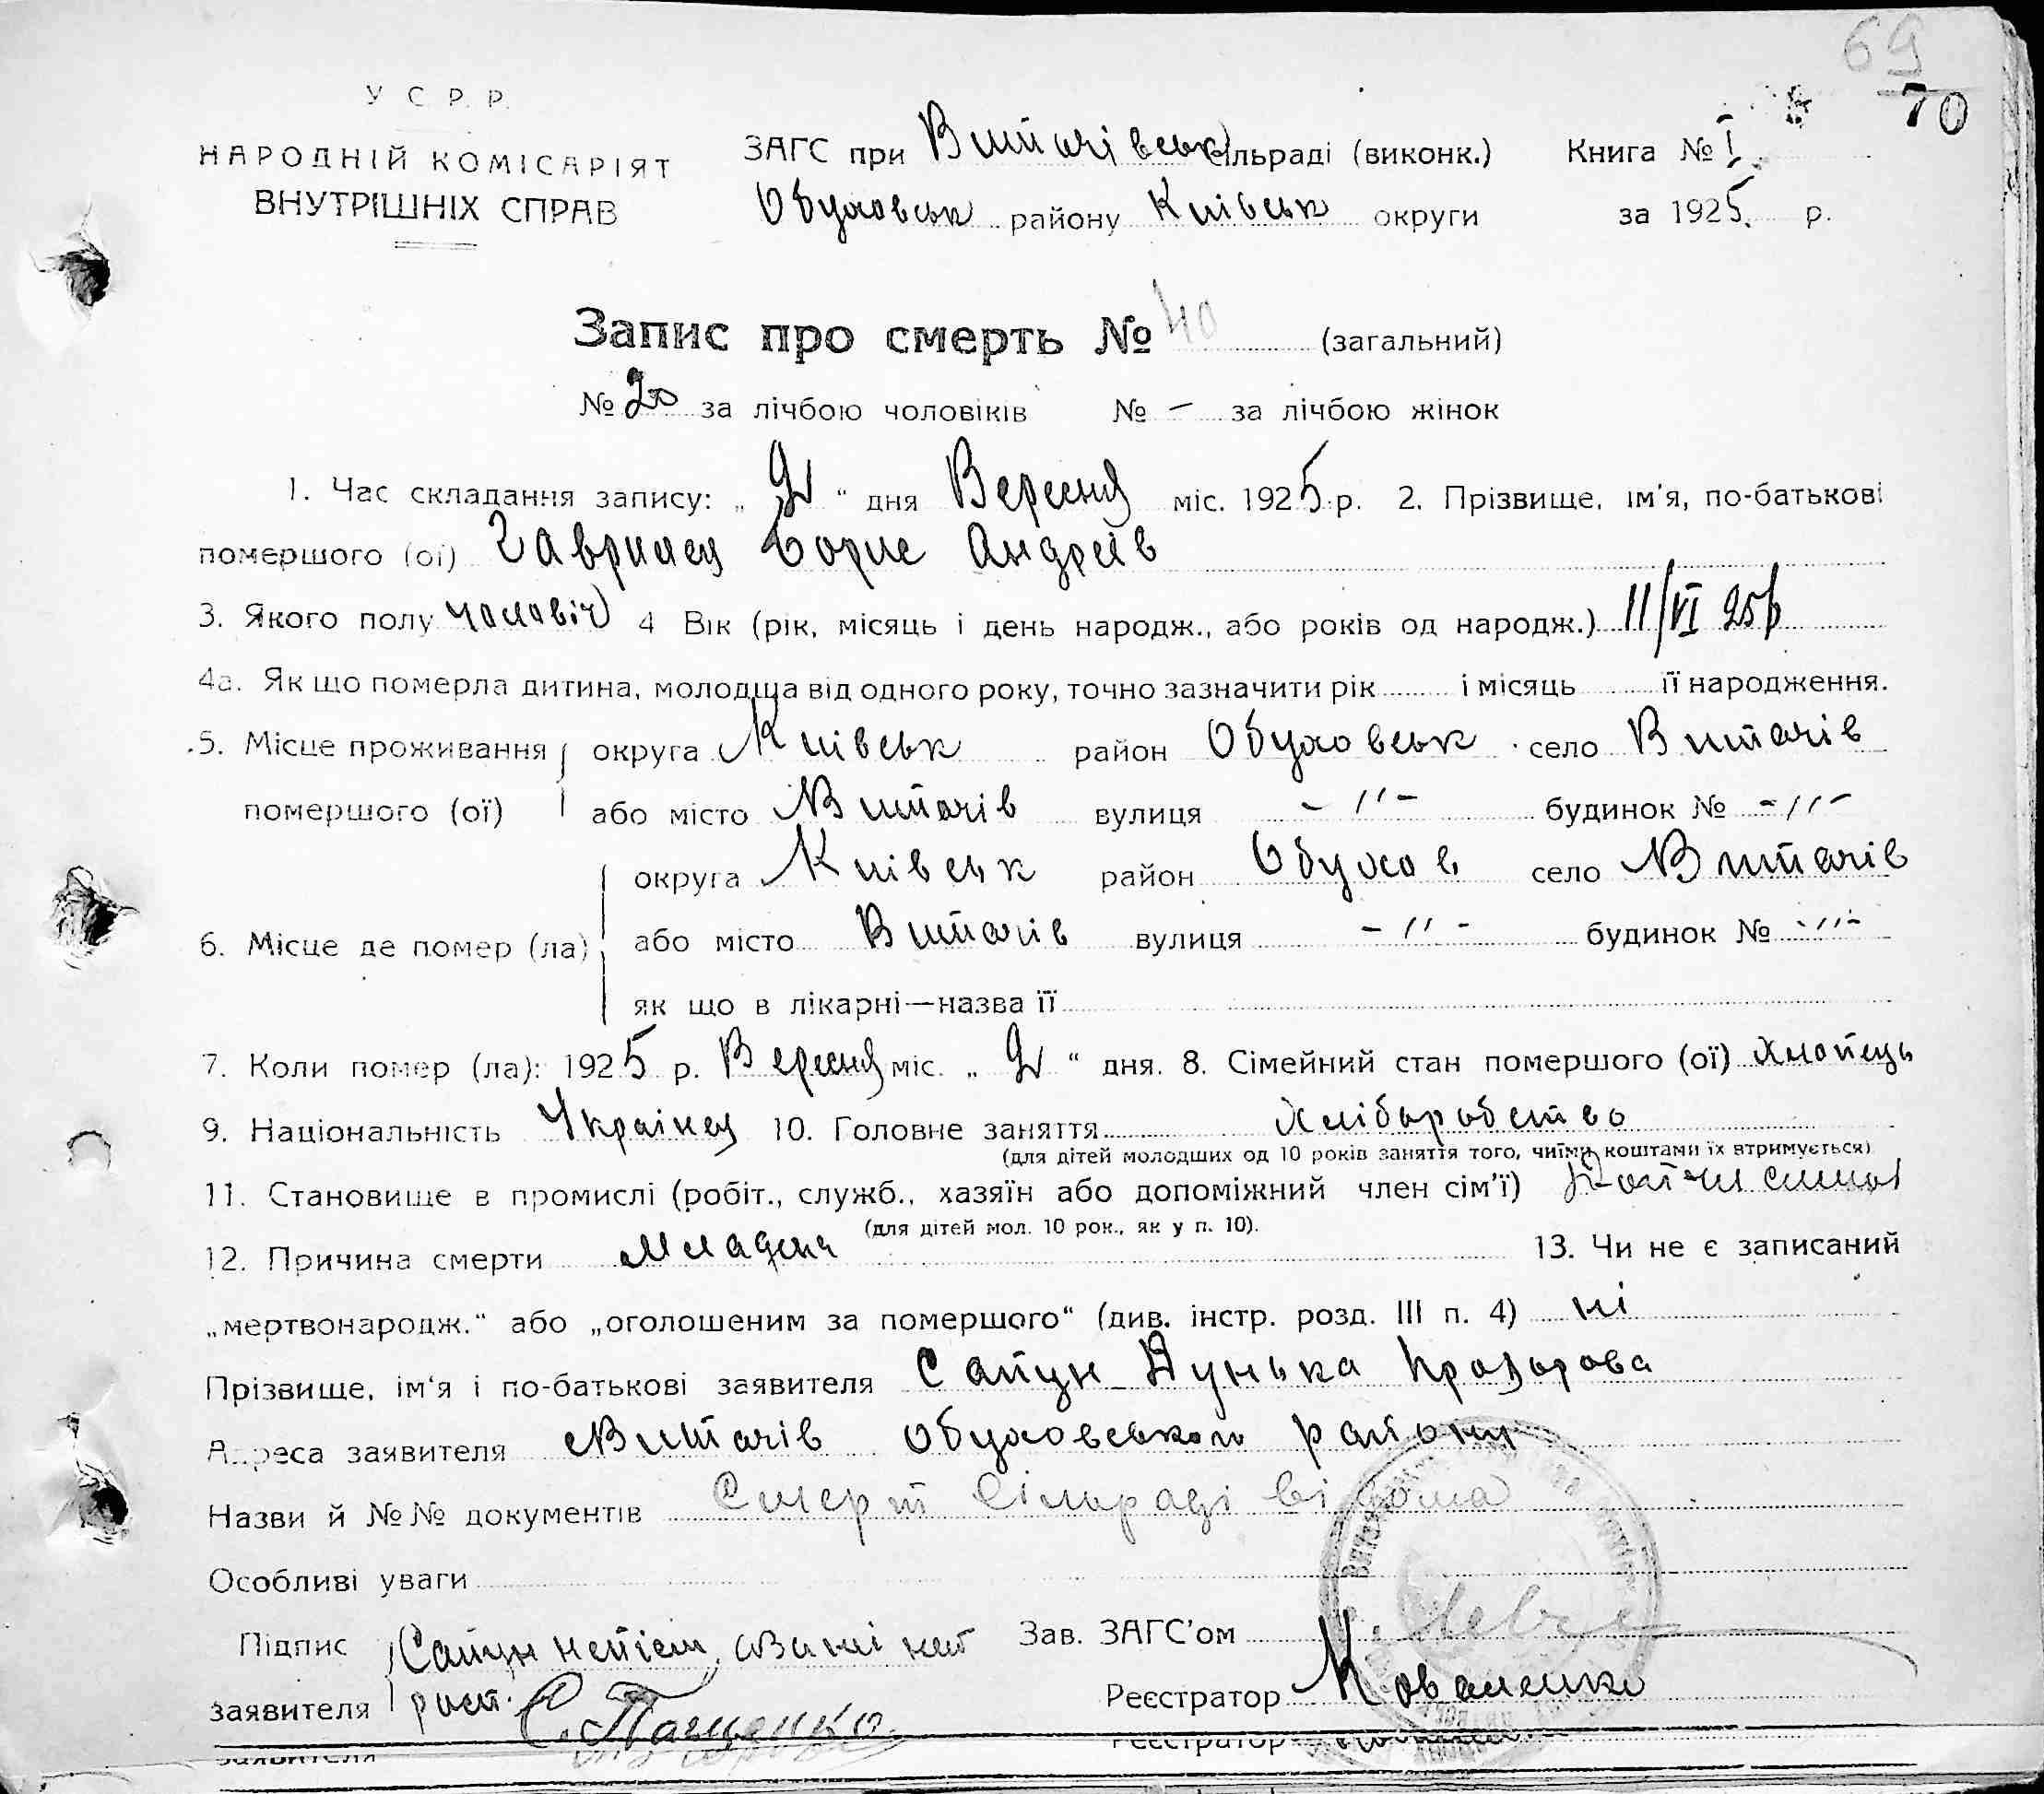 69
70
У С Р Р.
НАРОДНІЙ КОМІСАРІЯТ
ВНУТРІШНІХ СПРАВ
ЗАГС при Витачівськ сільраді (виконк.) Книга № I
Обуховськ району Київськ округи за 1925 р.
Запис про смерть № 40 (загальний)
№ 20 за лічбою чоловіків № – за лічбою жінок
1. Час складання запису: „ 2 “ дня Вересня міс. 1925 р. 2. Прізвище, ім'я, по-батькові
помершого (ої) Гаврилец Борис Андреїв
3. Якого полу чоловіч 4 Вік (рік, місяць і день народж., або років од народж.) 11/VI 25 р
4а. Як що померла дитина, молодща від одного року, точно зазначити рік і місяць її народження.
5. Місце проживання округа Київськ район Обуховськ село Витачів
помершого (ої) або місто Витачів вулиця –"– будинок № –"–
округа Київськ район Обухов село Витачів
6. Місце де помер (ла) або місто Витачів вулиця –"– будинок № –"–
як що в лікарні—назва її
7. Коли помер (ла): 1925 р. Вересня міс. „ 2 “ дня. 8. Сімейний стан помершого (ої) хлопець
9. Національність Українец 10. Головне заняття хліборобство
(для дітей молодших од 10 років заняття того, чиїми коштами їх втримується)
11. Становище в промислі (робіт., служб., хазяїн або допоміжний член сім'ї)
(для дітей мол. 10 рок., як у п. 10).
12. Причина смерти младенч 13. Чи не є записаний
„мертвонародж.“ або „оголошеним за помершого“ (див. інстр. розд. III п. 4) ні
Прізвище, ім'я і по-батькові заявителя Сапун Дунька
Адреса заявителя Витачів Обуховського району
Назви й №№ документів Смерт сільраді відома
Особливі уваги
Підпис Сапун непісм, Зав. ЗАГС'ом
заявителя С. Пащенко Реєстратор Коваленко